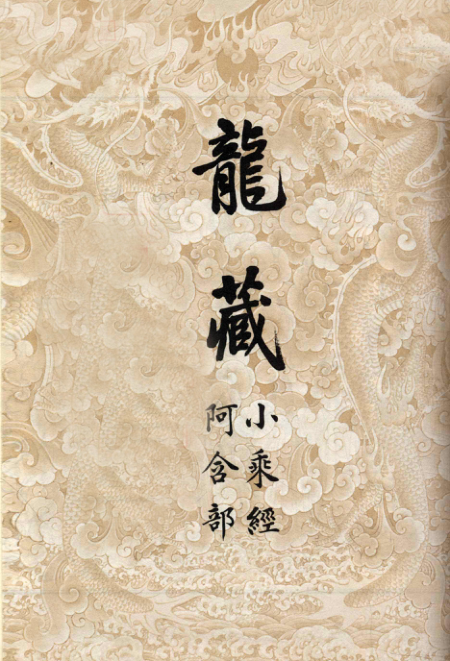 龍藏
小乘經
阿含部